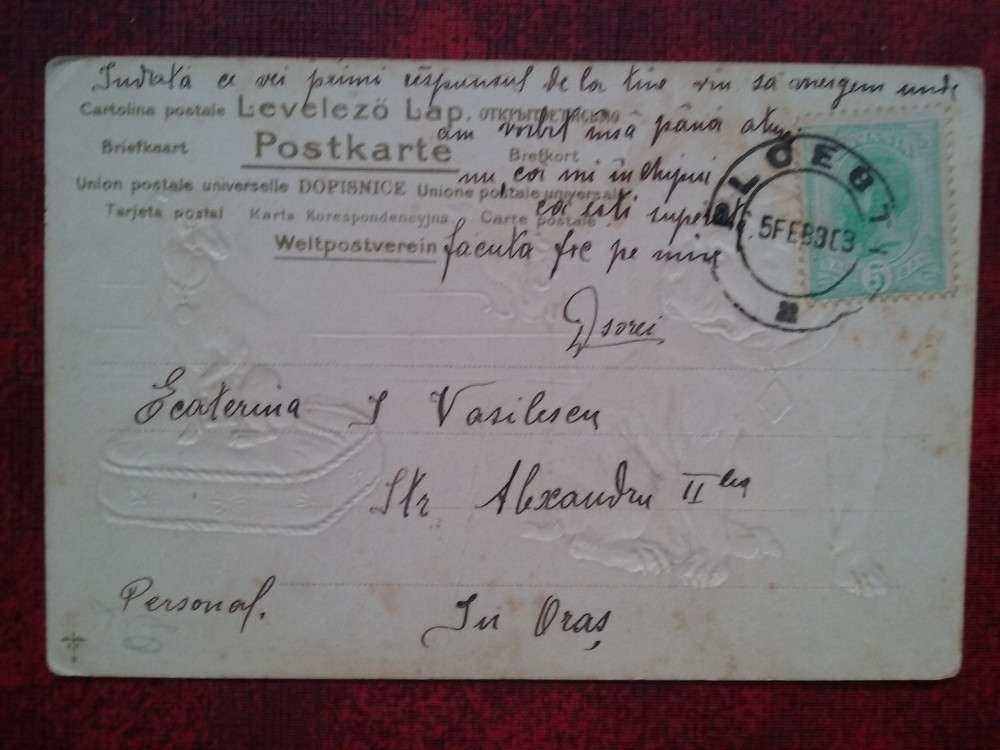 Îndată ce vei primi răspunsul de la tine vin să mergem unde
Cartolina postale Levelező Lap. ОТКРЫТОЕ ПИСЬМО
am vorbit însă până atunci
Briefkaart Postkarte Brefkort
nu, că mi închipui
Union postale universelle DOPISNICE Unione postale universale
că ești supărată
Tarjeta postal Karta Korespondencyjna Carte postale
Weltpostverein
făcută foc pe mine
PLOEȘTI
5 FEB 903
5
Dsorei
Ecaterina I Vasilescu
Str Alexandru II lea
Personal.
În Oraș